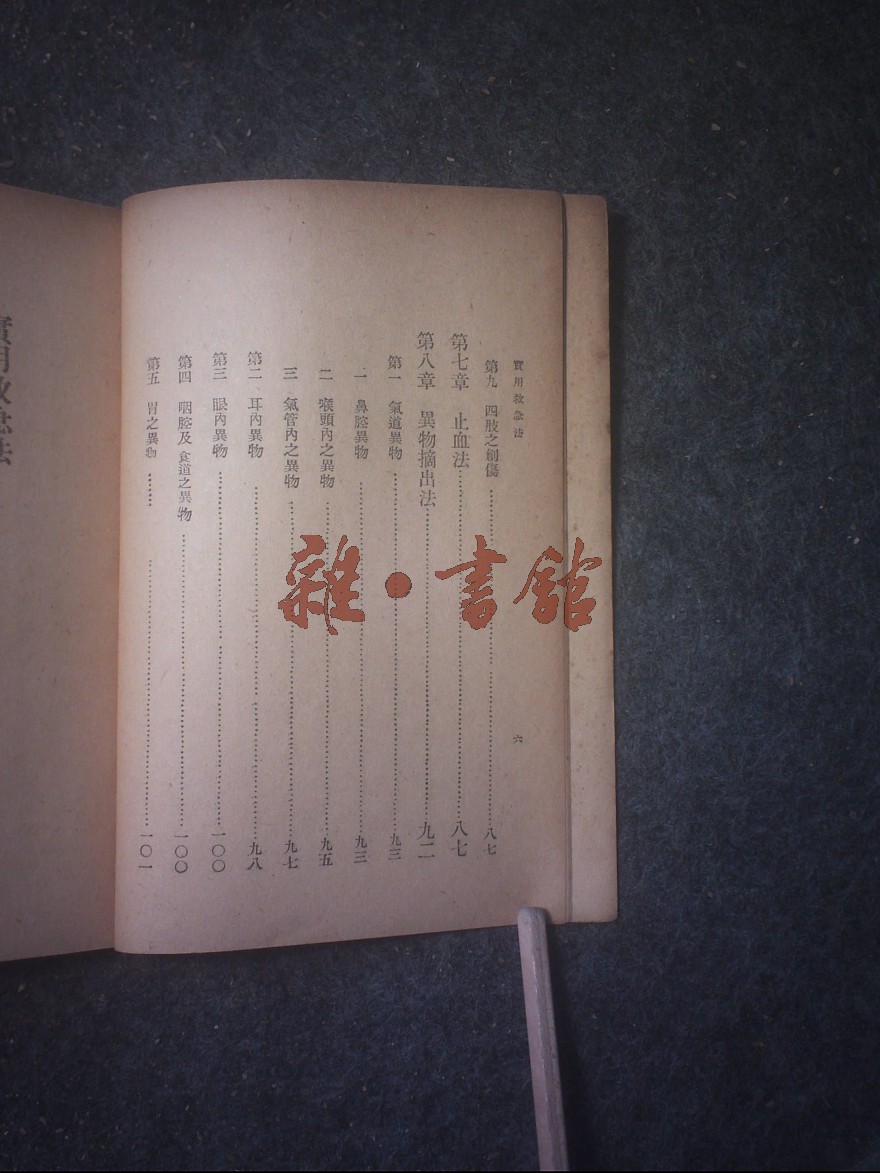 實用救急法
六
第九 四肢之創傷……八七
第七章 止血法……八七
第八章 異物摘出法……九二
第一 氣道異物……九三
一 鼻腔異物……九三
二 喉頭內之異物……九五
三 氣管內之異物……九七
第二 耳內異物……九八
第三 眼內異物……一〇〇
第四 咽腔及食道之異物……一〇〇
第五 胃之異物……一〇一
實用救急法
雜·書館